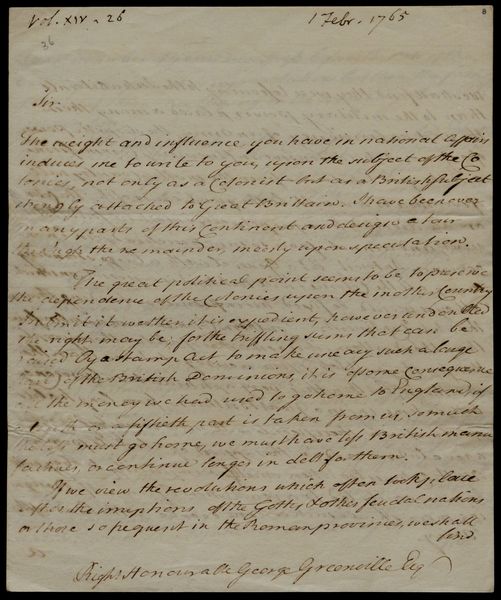 Vol. XIV - 26
1 Febr. 1765
8
36
Sir
The weight and influence you have in national affairs
induces me to write to you, upon the subject of the Co
lonies, not only as a Colonist but as a British subject
strongly attached to Great Brittain. I have been over
many parts of this Continent and design a tour
through the remainder, meerly upon speculation.
The great political point seems to be to preserve
the dependence of the Colonies upon the mother Country
submit it wether it is expedient, however undoubted
the right may be, for the triffling sums that can be
raised by a Stamp Act to make uneasy such a large
part of the British Dominions, it is of some Consequence
the money we had used to go home to England, if
a tenth or a fiftieth part is taken from us, so much
less must go home, we must have less British manu
factures, or continue longer in debt for them.
If we view the revolutions which often took place
after the irruptions of the Goths & other feudal nations
or those so frequent in the Roman provinces, we shall
find
Right Honourable George Greenville Esqr